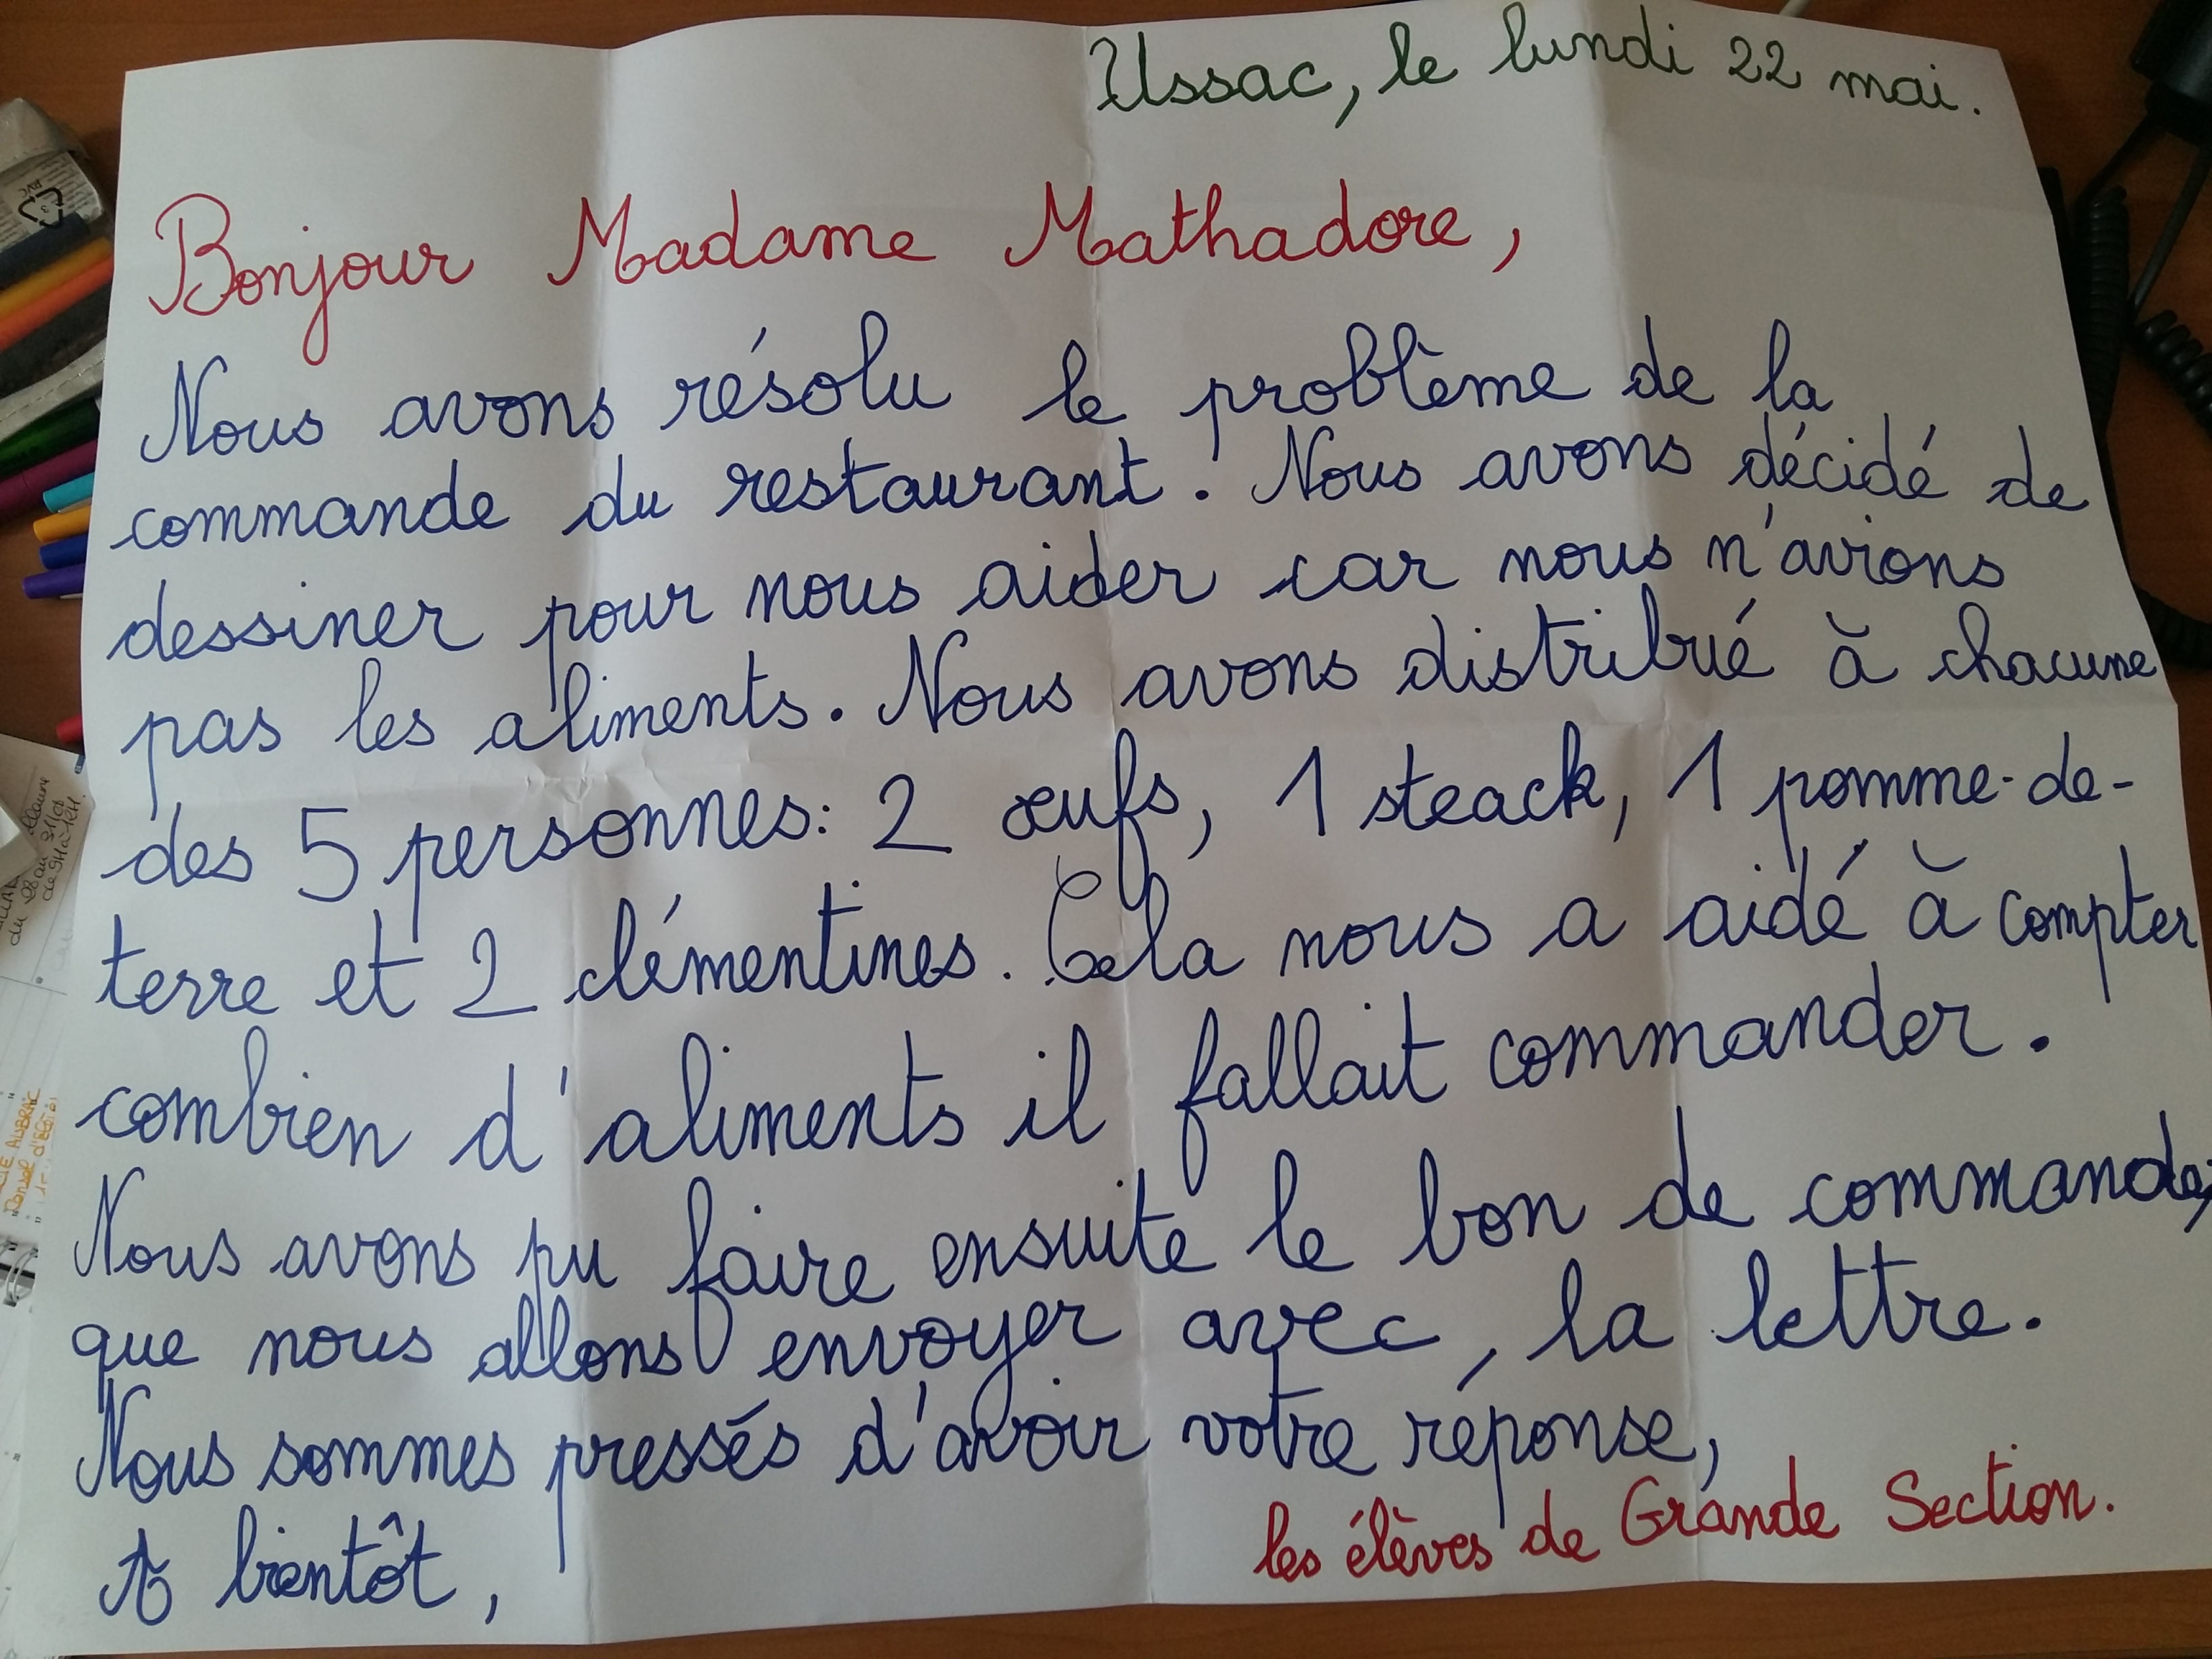 Ussac, le lundi 22 mai.
Bonjour Madame Mathadore,
Nous avons résolu le problème de la
commande du restaurant. Nous avons décidé de
dessiner pour nous aider car nous n'avions
pas les aliments. Nous avons distribué à chacune
des 5 personnes: 2 œufs, 1 steack, 1 pomme-de-
terre et 2 clémentines. Cela nous a aidé à compter
combien d'aliments il fallait commander.
Nous avons pu faire ensuite le bon de commande,
que nous allons envoyer avec, la lettre.
Nous sommes pressés d'avoir votre réponse,
A bientôt,
les élèves de Grande Section.
PVC